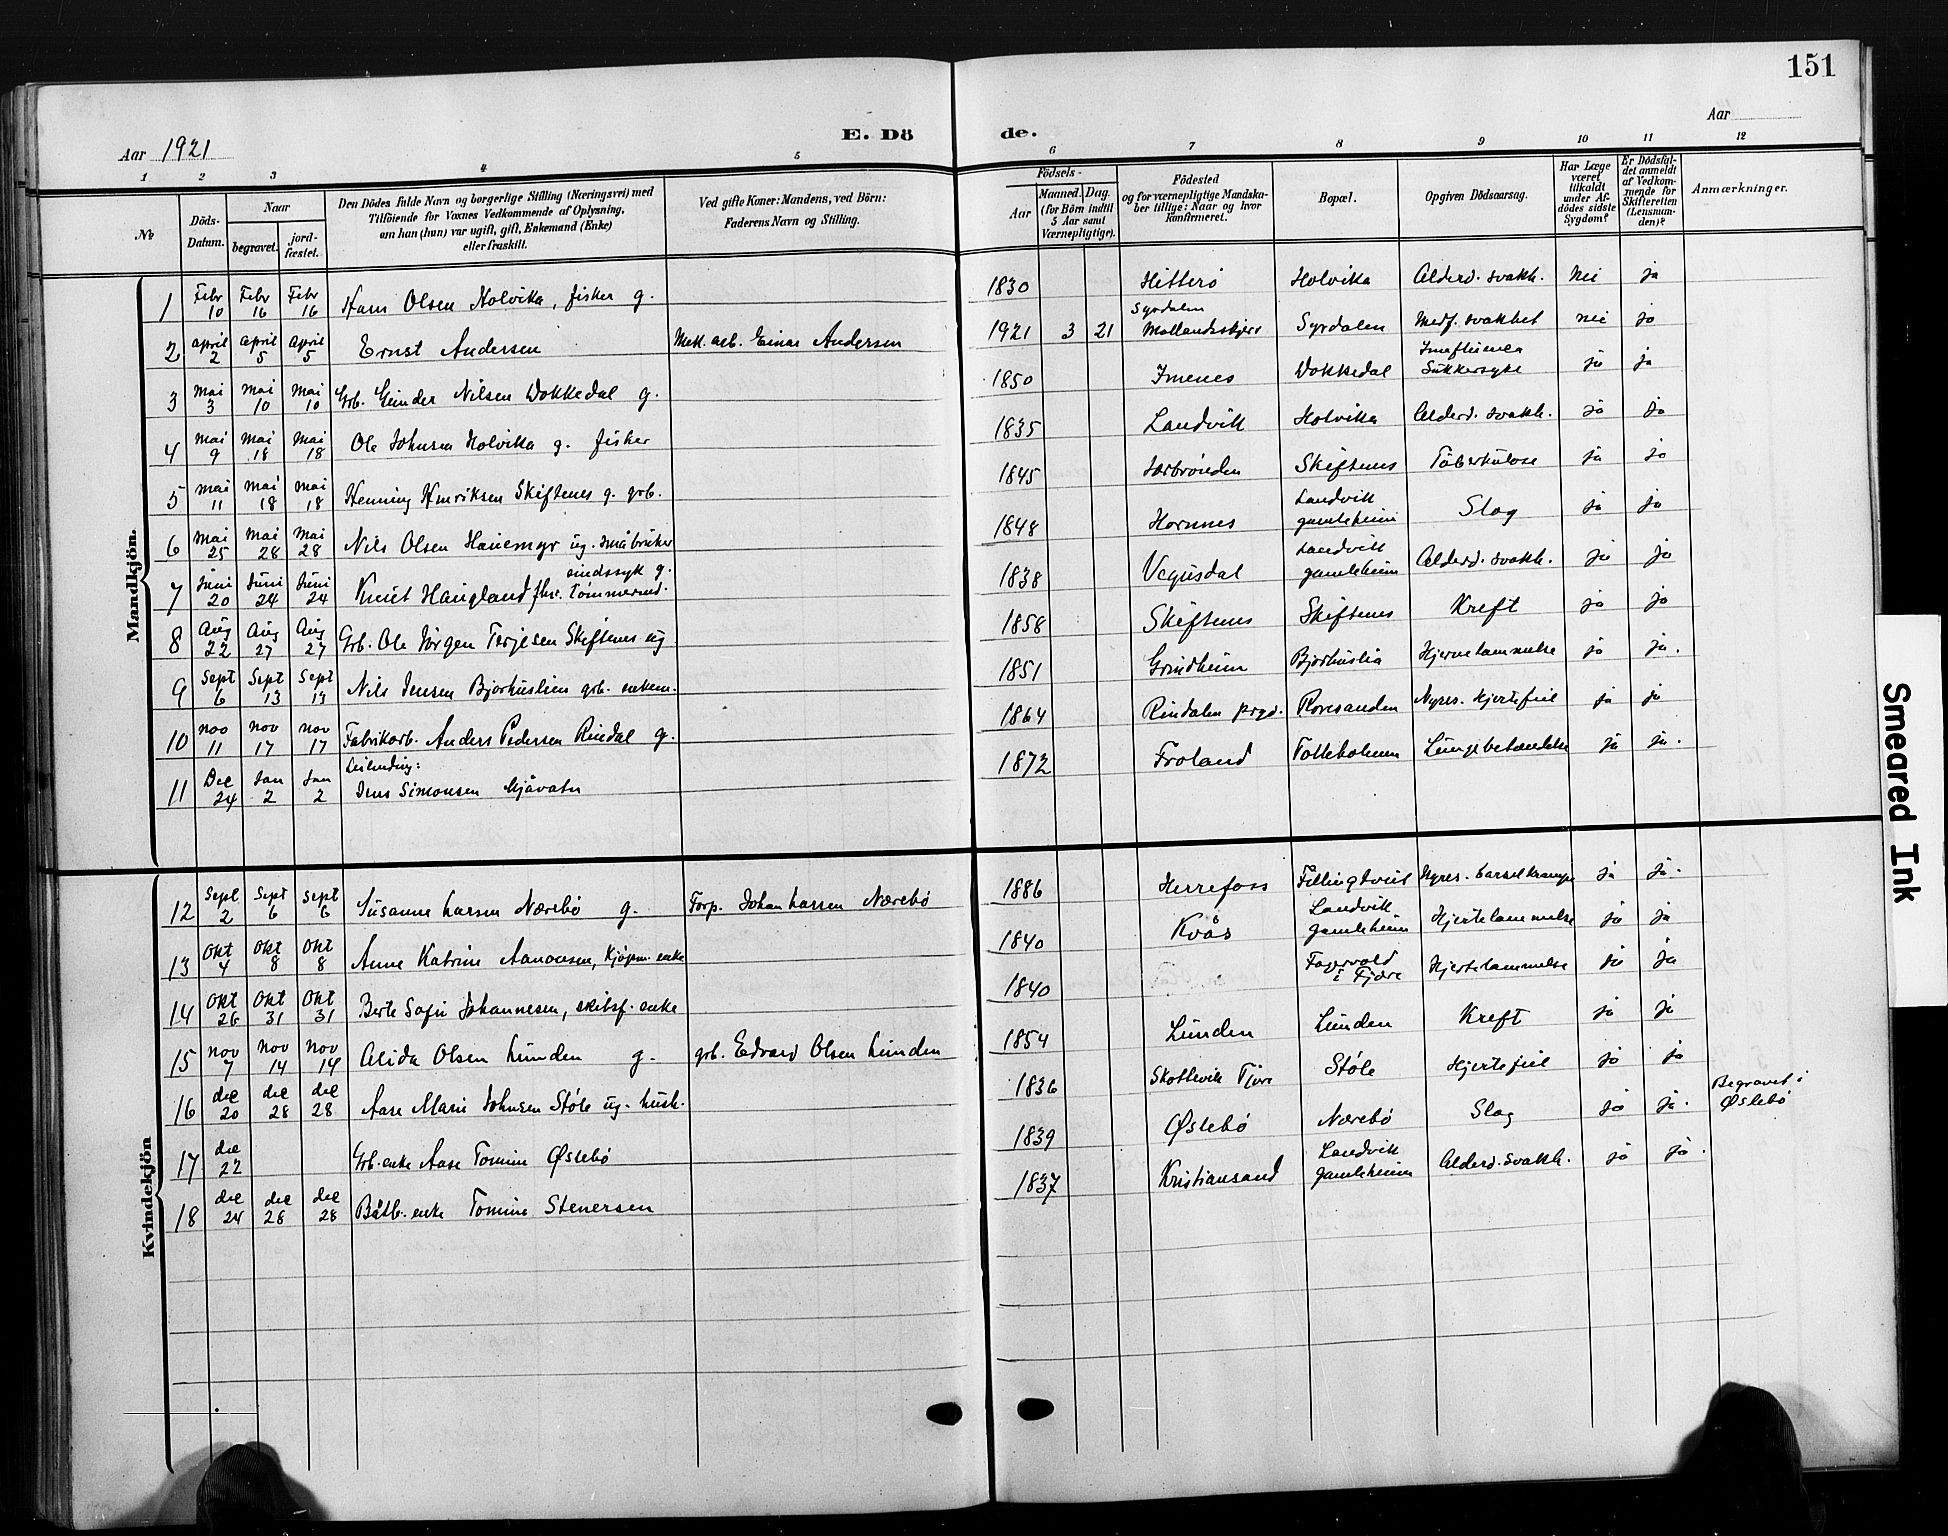 151
Aar 1921
E. Dö
de.
Aar
1 2 3 4 5 6 7 8 9 10 11 12
№
Döds-Datum.
Naar
begravet.
jord-fæstet.
Den Dödes fulde Navn og borgerlige Stilling (Næringsvei) med
Tilföiende for Voxnes Vedkommende af Oplysning,
om han (hun) var ugift, gift, Enkemand (Enke)
eller fraskilt.
Ved gifte Koner: Mandens, ved Börn:
Faderens Navn og Stilling.
Födsels-
Aar
Maaned. Dag.
(for Börn indtil
5 Aar samt
Værnepligtige).
Födested
og for værnepligtige Mandska-
ber tillige: Naar og hvor
konfirmeret.
Bopæl.
Opgiven Dödsaarsag.
Har Læge
været
tilkaldt
under Af-
dödes sidste
Sygdom?
Er Dödsfal-
det anmeldt
af Vedkom-
mende for
Skifteretten
(Lensman-
den)?
Anmærkninger.
Mandkjön.
1 Febr 10 Febr 16 Febr 16 Hans Olsen Holvika, fisker g. 1830 Hitterö Holvika Alderd. svakh. nei ja
2 april 2 April 5 April 5 Ernst Andersen Mek. arb. Einar Andersen 1921 3 21 Syrdalen Mollandsskjær Syrdalen Medf. svakhet nei ja
3 Mai 3 Mai 10 Mai 10 Grb. Gunder Nilsen Dokkedal g. 1850 Imenes Dokkedal Influenca Sukkersyke ja ja
4 Mai 9 Mai 18 Mai 18 Ole Johnsen Holvika g. fisker 1835 Landvik Holvika Alderd. svakh. ja ja
5 Mai 11 Mai 18 Mai 18 Henning Henriksen Skiftenes g. grb. 1845 Skiftenes Tuberkulose ja ja
6 Mai 25 Mai 28 Mai 28 Nils Olsen Hauemyr ug. småbruker 1848 Hornnes Landvik gamleheim Slag ja ja
7 Juni 20 Juni 24 Juni 24 Knut Haugland fhv. Tömmermd. sindssyk g. 1838 Vegusdal Landvik gamleheim Alderd. svakh. ja ja
8 Aug 22 Aug 27 Aug 27 Grb. Ole Jörgen Terjesen Skiftenes ug 1858 Skiftenes Skiftenes Kreft ja ja
9 Sept 6 Sept 13 Sept 13 Nils Jensen Bjorhuslien grb. enkem. 1851 Grindheim Bjorhuslia Hjernelammelse ja ja.
10 nov 11 nov 17 nov 17 Fabrikarb. Anders Pedersen Rindal g. 1864 Rindalen prgd. Roresanden Nyres. Hjertefeil ja ja
11 Dec 24 Jan 2 Jan 2 Leilending: Jens Simonsen Mjåvatn 1872 Froland Tolleholmen Lungebetændelse ja ja.
Kvindekjön
12 Sept 2 Sept 6 Sept 6 Susanne Larsen Nærebö g. Forp. Johan Larsen Nærebö 1886 Herrefoss Fillingtveit Nyres. barselkrampe ja ja.
13 Okt 4 Okt 8 Okt 8 Anne Katrine Aanonsen, Kjöpm. enke 1840 Kvås Landvik gamleheim Hjertelammelse ja ja
14 Okt 26 Okt 31 Okt 31 Berte Sofie Johannesen, skibsf. enke 1840 Fagervold i Fjære Hjertelammelse ja ja
15 nov 7 nov 14 nov 14 Alida Olsen Lunden g. grb. Edvard Olsen Lunden 1854 Lunden Lunden Kreft ja ja
16 dec 20 dec 28 dec 28 Aase Marie Johnsen Støle ug. hush. 1836 Skottevik Fjære Støle Hjertefeil ja ja
17 dec 22 Grb. enke Aase Tomine Øslebö 1839 Øslebö Nærebö Slag ja ja. Begravet i Øslebö
18 dec 24 dec 28 dec 28 Båtb. enke Tomine Stenersen 1837 Kristiansand Landvik gamleheim Alderd. svakh. ja ja.
Smeared Ink